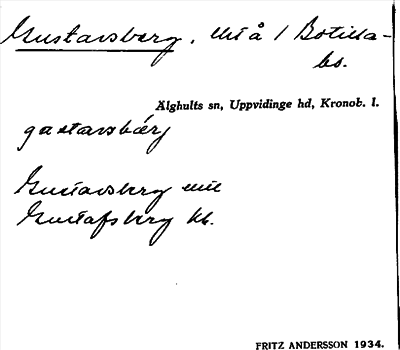 Gustavsberg, Utå / Botilla-
bo.
Älghults sn, Uppvidinge hd, Kronob. l.
gustavsbärj
Gustavsberg
Gustafsberg kb.
FRITZ ANDERSSON 1934.